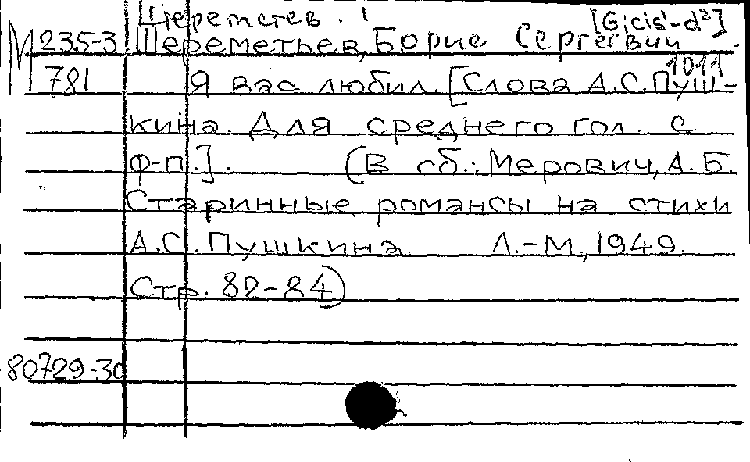 Шереметев. [G:cis¹-d²]
М 235-3 Шереметьев, Борис Сергеевич. 1011
781 Я вас любил. [Слова А.С.Пуш-
кина. Для среднего гол. с
ф-п.]. (В сб.: Мерович, А.Б.
Старинные романсы на стихи
А.С. Пушкина. Л.-М., 1949.
Стр. 82-84)
80729-30